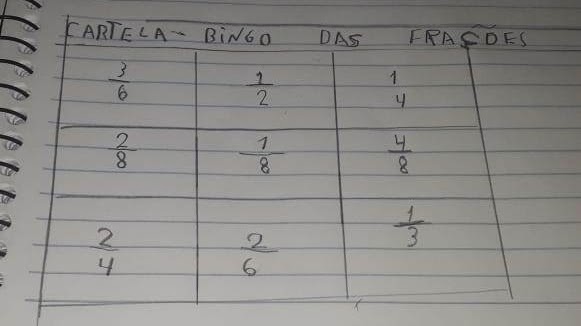 CARTELA - BINGO DAS FRAÇÕES
3/6 1/2 1/4
2/8 1/8 4/8
2/4 2/6 1/3